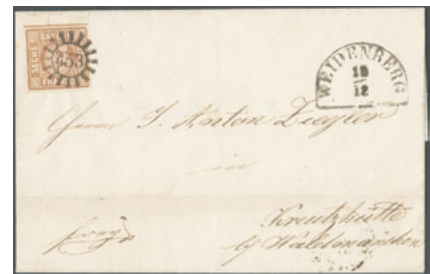 SECHS
BAY
453
WEIDENBERG
19
12
Herrn J. Anton Ziegler
in
Kreutzhütte
by Waldmünchen